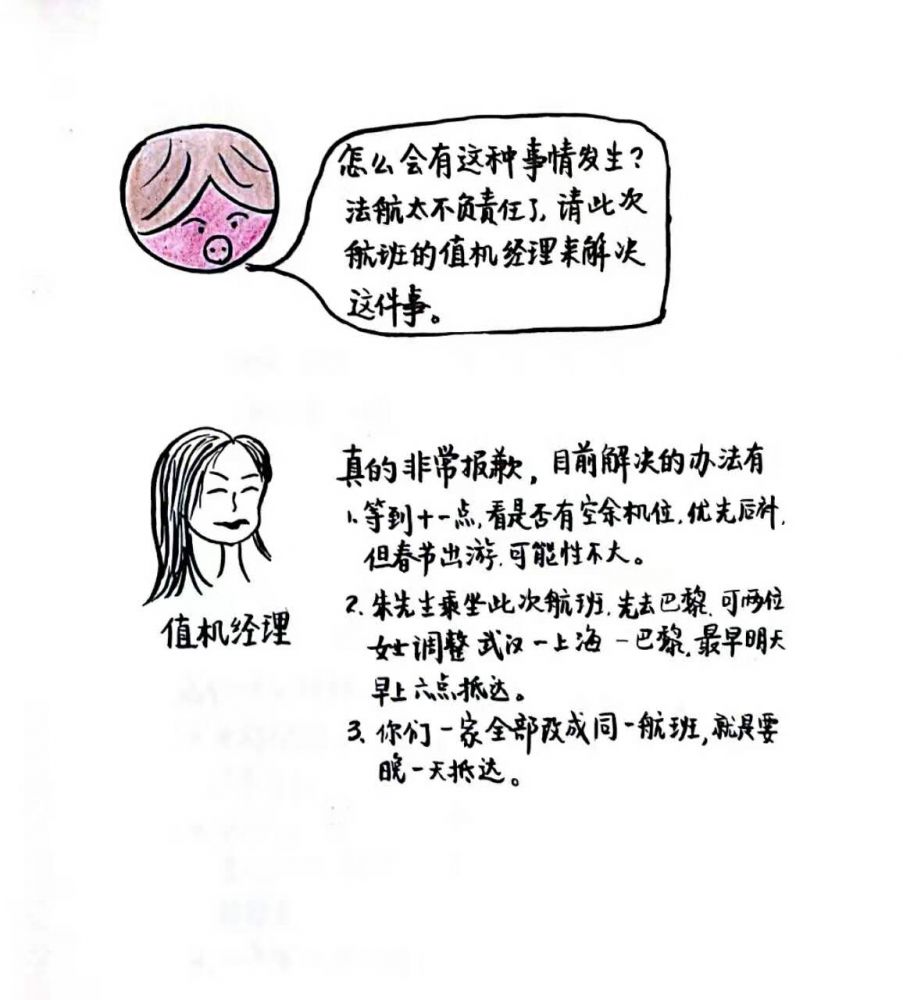 怎么会有这种事情发生?
法航太不负责任了,请此次
航班的值机经理来解决
这件事。
真的非常报歉,目前解决的办法有
1.等到十一点,看是否有空余机位.优先后补.
但春节出游.可能性不大。
2.朱先生乘坐此次航班.先去巴黎.可两位
女士调整武汉-上海-巴黎.最早明天
早上六点抵达。
3.你们一家全部改成同一航班,就是要
晚一天抵达。
值机经理